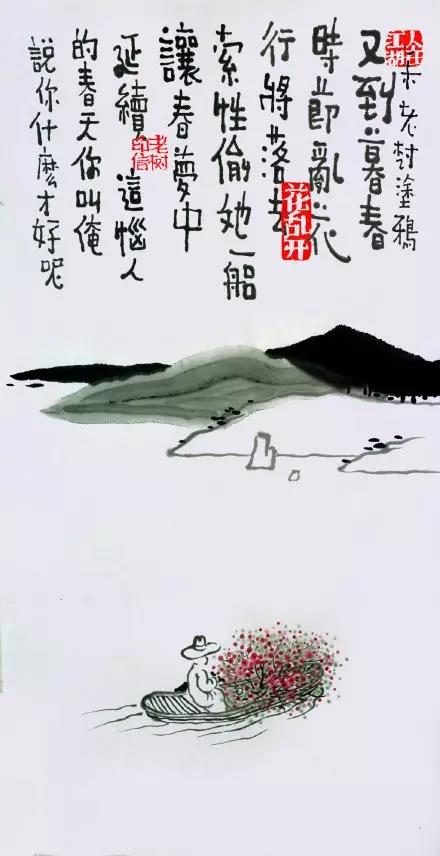 人在江湖
未老树塗鴉
又到暮春
時節亂花
行將落去
花乱开
索性偷她一船
讓春夢中
老树印信
延續這惱人
的春天你叫俺
說你什麼才好呢